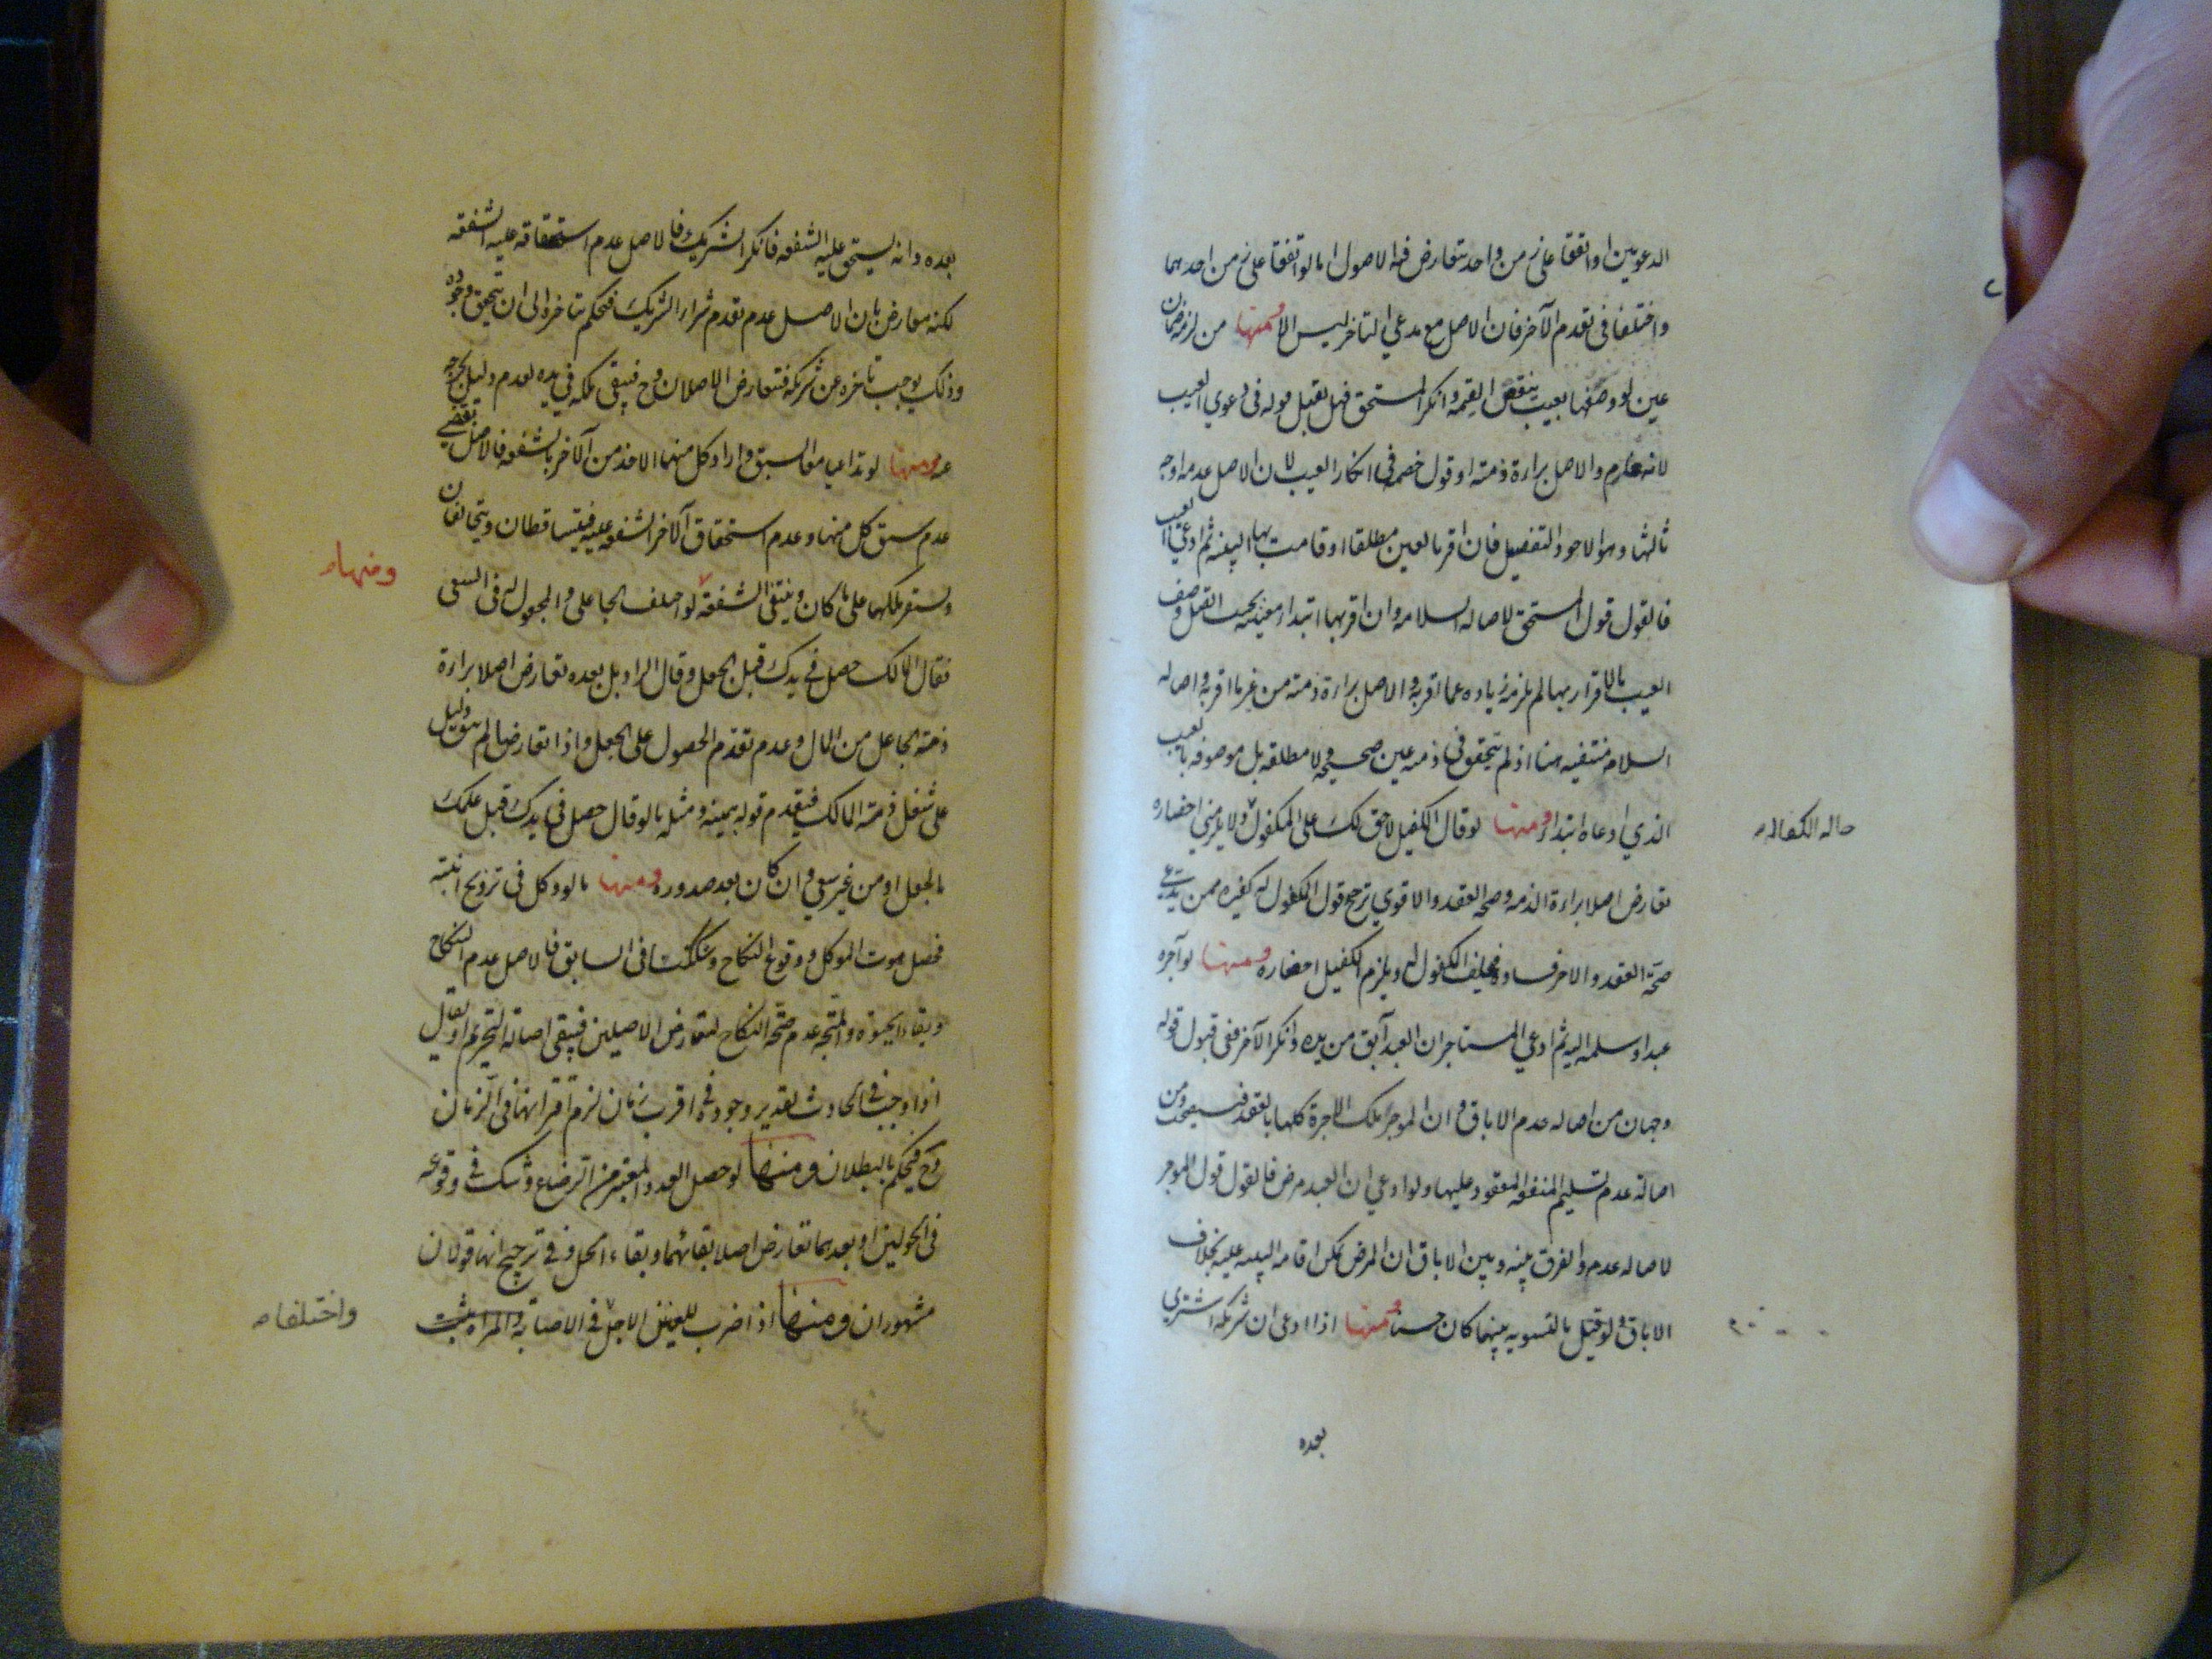 الدعويين او اتفقا على زمن واحد بتعارض فيه الاصول اما لو اتفقا على زمن احدهما
واختلفا في تقدم الآخر فان الاصل مع مدعي التاخر ليس الا ومنها من لزمه ضمان
عين لو وصفها بعيب ينقص القيمة وانكر المستحق فهل يقبل قوله في دعوي العيب
لانه غارم والاصل براءة ذمته او قول خصمه في انكار العيب لان الاصل عدمه اوجه
ثالثها وهو الاجود التفصيل فان اقر بالعين مطلقا او قامت بها البينه ثم ادعي العيب
فالقول قول المستحق لاصاله السلامه وان اقر بها ابتداء معيبه بحيث اتصل وصف
العيب بالاقرار بها لم يلزمه زياده عما اقر به والاصل براءة ذمته من غير ما اقر به واصاله
السلامه منتفيه هنا اذ لم يتحقق في ذمته عين صحيحه ولا مطلقه بل موصوفه بالعيب
الذي ادعاه ابتداء ومنها لو قال الكفيل لا حق لك على المكفول ولا يلزمني احضاره
حاله الكفاله
تعارض اصلا براءة الذمه وصحه العقد والاقوي ترجيح قول المكفول له كغيره ممن يدعي
صحة العقد والاخر فساده فيحلف المكفول له ويلزم الكفيل احضاره ومنها لو آجره
عبدا وسلمه اليه ثم ادعي المستاجر ان العبد آبق من يده وانكر الآخر ففي قبول قوله
وجهان من اصاله عدم الاباق وان الموجر يملك الاجرة كلها بالعقد فيستصحب ومن
اصالة عدم تسليم المنفعه المعقود عليها ولو ادعي ان العبد مرض فالقول قول الموجر
لاصاله عدمه والفرق بينه وبين الاباق ان المرض يمكن اقامه البينه عليه بخلاف
الاباق ولو قيل بالتسويه بينهما كان حسنا ومنها اذا ادعى ان شريكه اشتري
بعده
بعده وانه يستحق عليه الشفعه فانكر الشريك فالاصل عدم استحقاقه عليه الشفعه
لكنه معارض بان الاصل عدم تقدم شراء الشريك فيحكم بتاخره الى ان يتحقق وجوده
وذلك يوجب تاخره عن شركه فتعارض الاصلان وح فيبقى ملكه في يده لعدم دليل يخرجه
عنه ومنها لو تداعيا معا السبق واراد كل منهما الاخذ من الآخر بالشفعه فالاصل يقتضي
عدم سبق كل منهما وعدم استحقاق الآخر الشفعه عليه فيتساقطان ويتحالفان
ويستقر ملكهما على ما كان وينتفي الشفعة لو اختلف الجاعل والمجعول له في السعي
ومنها
فقال المالك حصل في يدك قبل الجعل وقال الراد بل بعده تعارض اصلا براءة
ذمته الجاعل من المال وعدم تقدم الحصول على الجعل واذا تعارضا لم يبق دليل
على شغل ذمة المالك فيقدم قوله بيمينه ومثله ما لو قال حصل في يدك قبل علمك
بالجعل او من غير سعي وان كان بعد صدوره ومنها ما لو وكل في تزويج ابنته
فحصل موت الموكل ووقوع النكاح وشككت في السابق فالاصل عدم النكاح
وبقاء الحيوة والمتجه عدم صحة النكاح لتعارض الاصلين فيبقى اصالة التحريم او يقال
اذا وجب في الحادث تقدير وجوده في اقرب زمان لزم اقترانهما في الزمان
وح فيحكم بالبطلان ومنها لو حصل العدد المعتبر من الرضاع وشك في وقوعه
في الحولين او بعدهما تعارض اصلا بقائهما وبقاء الحل وفي ترجيح ايهما قولان
مشهوران ومنها اذا ضرب للعنين الاجل في الاصابة والمراه ثيب
واختلفا